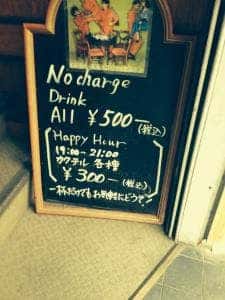 No charge
Drink
All ¥500-
(税込)
Happy Hour
19:00-21:00
カクテル 各種
¥300-(税込)
一杯だけでもお気軽にどうぞ!